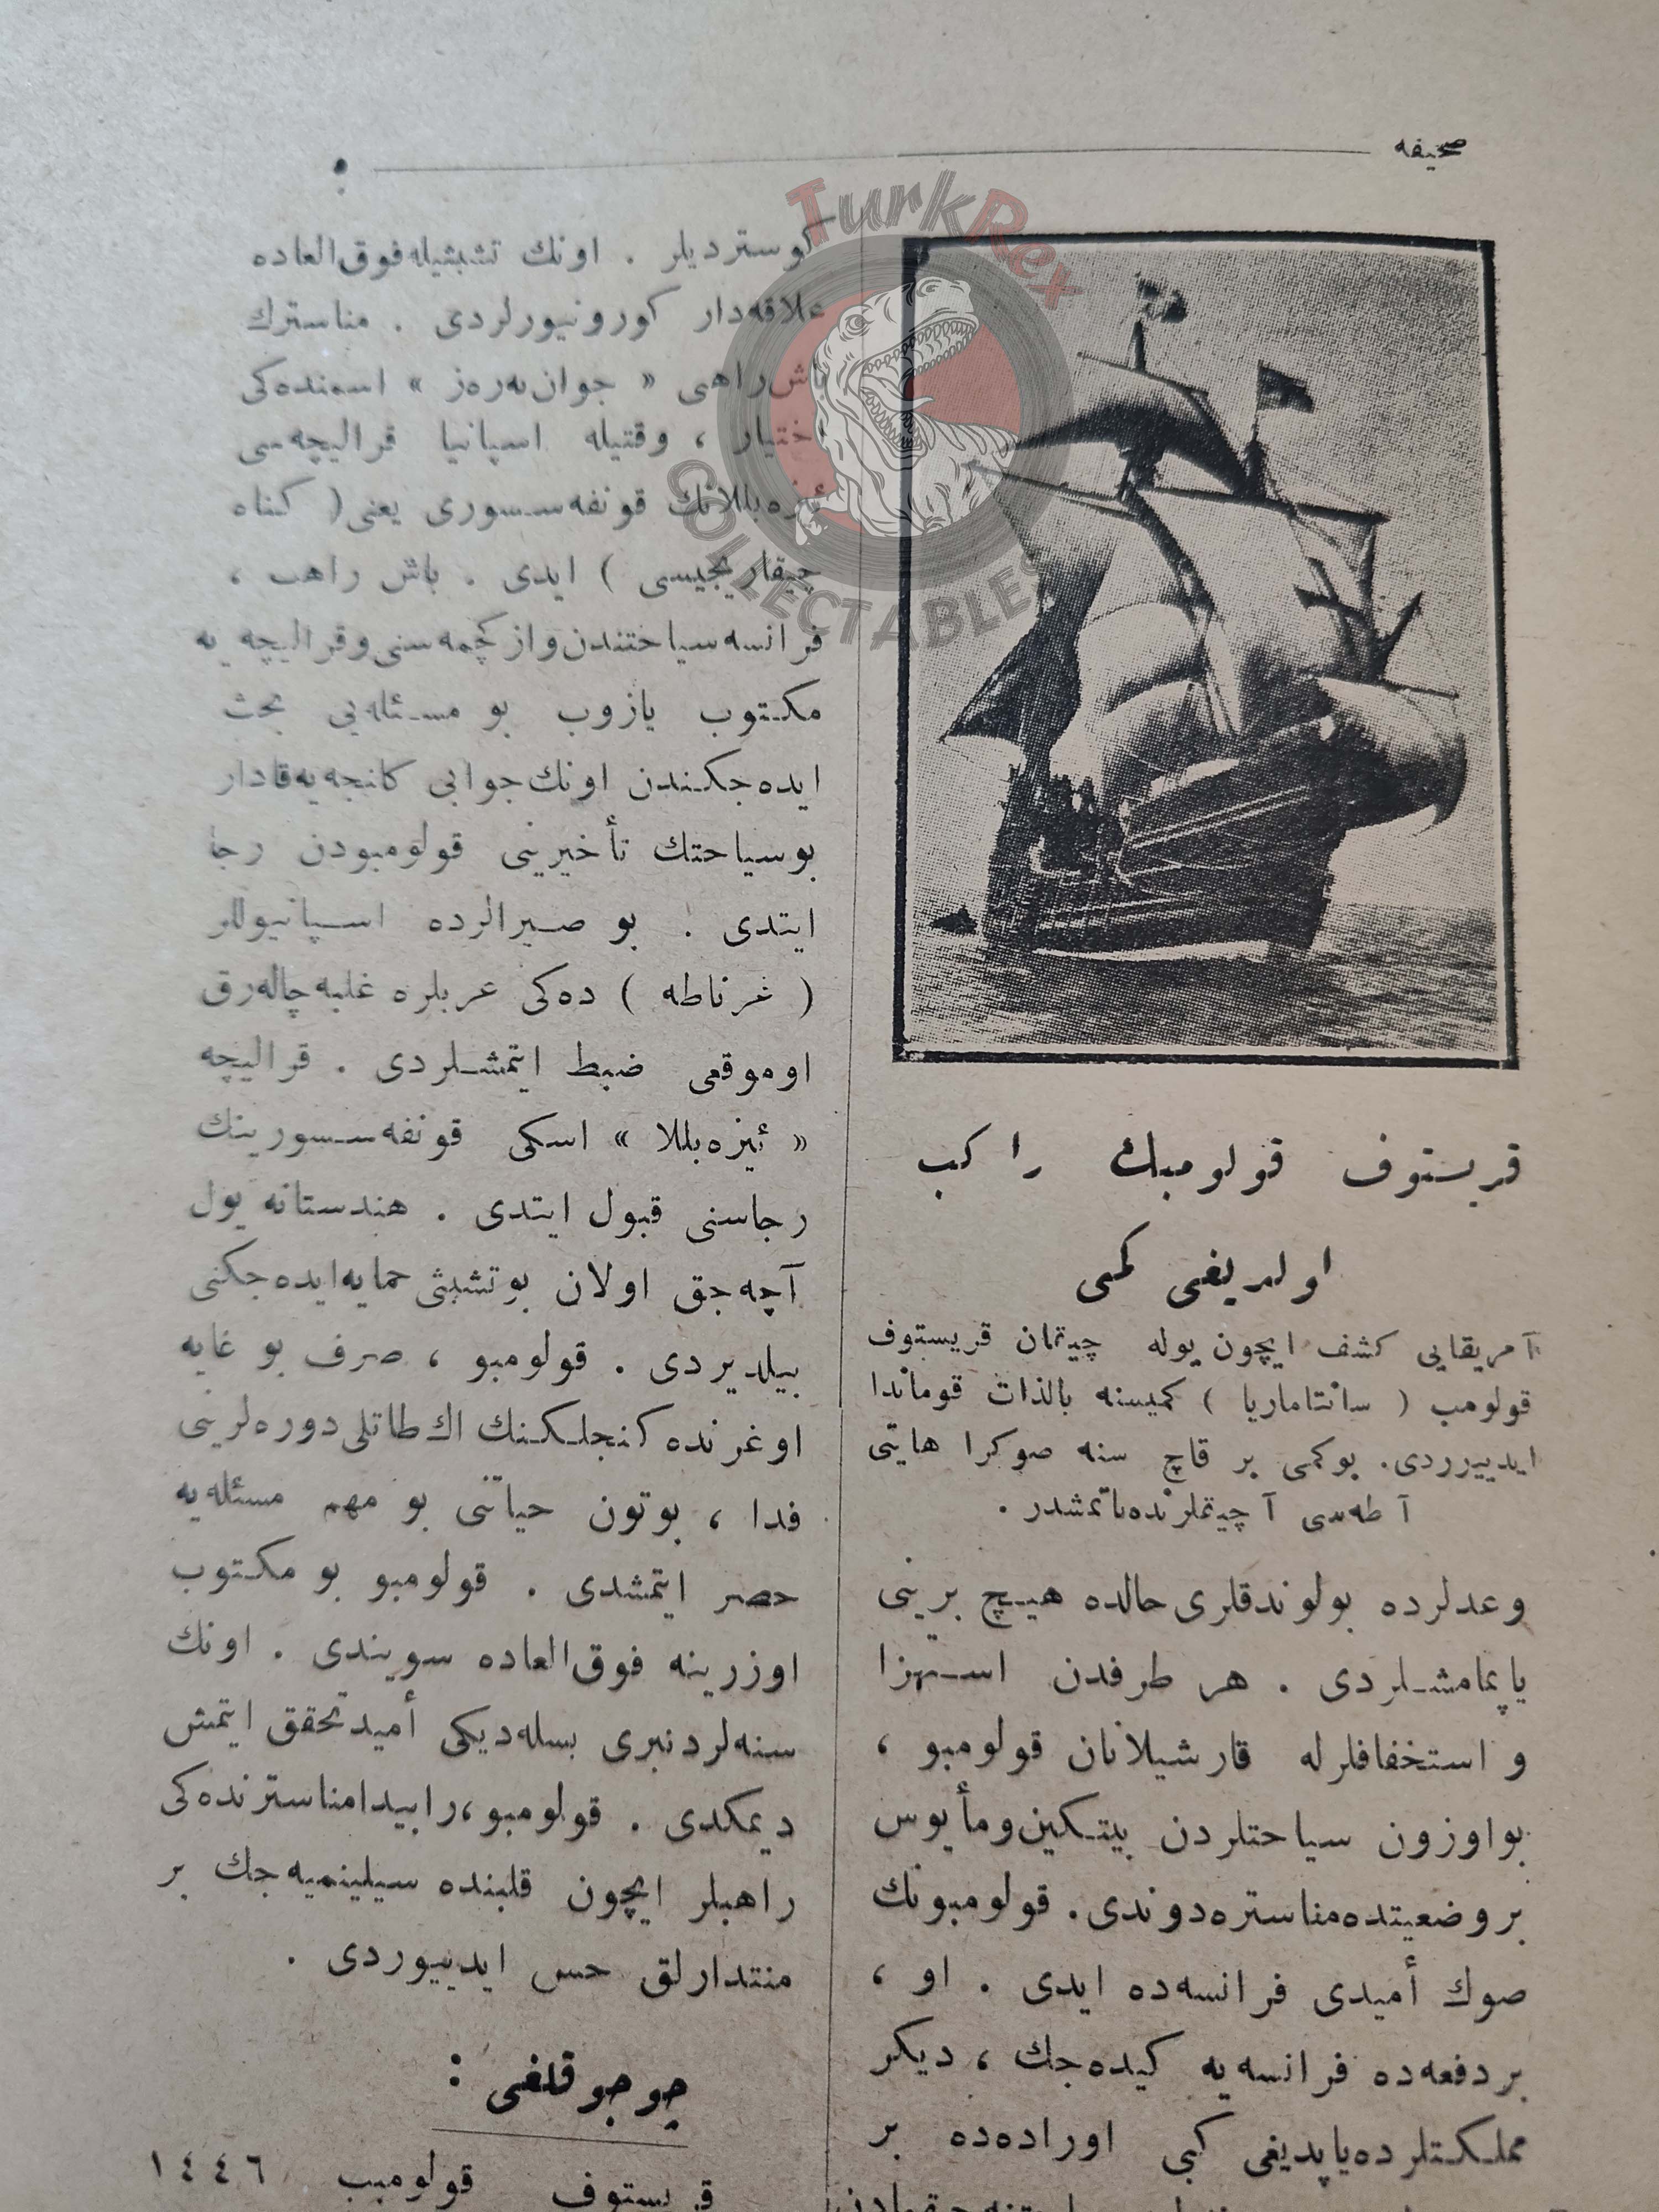 صحيفه
٠
قريستوف قولومبك راكب
اولديغى كمى
آمريقايى كشف ايچون يوله چيقان قريستوف
قولومب ( سانتاماريا ) كميسنه بالذات قوماندا
ايدييوردى. بوكمى بر قاچ سنه صوكرا هايتى
آطه‌سى آچيقلرنده‌باتمشدر .
وعدلرده بولوندقلرى حالده هيچ برينى
ياپمامشلردى . هر طرفدن استهزا
و استخفافلرله قارشيلانان قولومبو ،
بواوزون سياحتلردن بيتكين‌ومأيوس
بروضعيتده‌مناستره‌دوندى. قولومبونك
صوك أميدى فرانسه‌ده ايدى . او ،
بردفعه‌ده فرانسه‌يه كيده‌جك ، ديكر
مملكتلرده‌ياپديغى كبى اوراده‌ده بر
كوسترديلر . اونك تشبثيله‌فوق‌العاده
علاقه‌دار كورونيورلردى . مناسترك
باش‌راهبى « جوان‌په‌ره‌ز » اسمنده‌كى
اختيار ، وقتيله اسپانيا قراليچه‌سى
ئيزه‌بللانك قونفه‌سسورى يعنى( كناه
چيقاريجيسى ) ايدى . باش راهب ،
فرانسه‌سياحتندن‌وازكچمه‌سنى‌وقراليچه‌يه
مكتوب يازوب بو مسئله‌يى بحث
ايده‌جكندن اونك‌جوابى كلنجه‌يه‌قادار
بوسياحتك تأخيرينى قولومبودن رجا
ايتدى . بو صيرالرده اسپانيوللر
( غرناطه ) ده‌كى عربلره غلبه‌چاله‌رق
اوموقعى ضبط ايتمشلردى . قراليچه
« ئيزه‌بللا » اسكى قونفه‌سسورينك
رجاسنى قبول ايتدى . هندستانه يول
آچه‌جق اولان بوتشبثى حمايه‌ايده‌جكنى
بيلديردى . قولومبو ، صرف بو غايه
اوغرنده كنجلكنك اك‌طاتلى‌دوره‌لرينى
فدا ، بوتون حياتنى بو مهم مسئله‌يه
حصر ايتمشدى . قولومبو بو مكتوب
اوزرينه فوق‌العاده سويندى . اونك
سنه‌لردنبرى بسله‌ديكى أميدتحقق ايتمش
ديمكدى . قولومبو،رابيدامناسترنده‌كى
راهبلر ايچون قلبنده سيلينميه‌جك بر
منتدارلق حس ايدييوردى .
چوجوقلغى :
قريستوف قولومب ١٤٤٦
TurkRex
COLLECTABLES